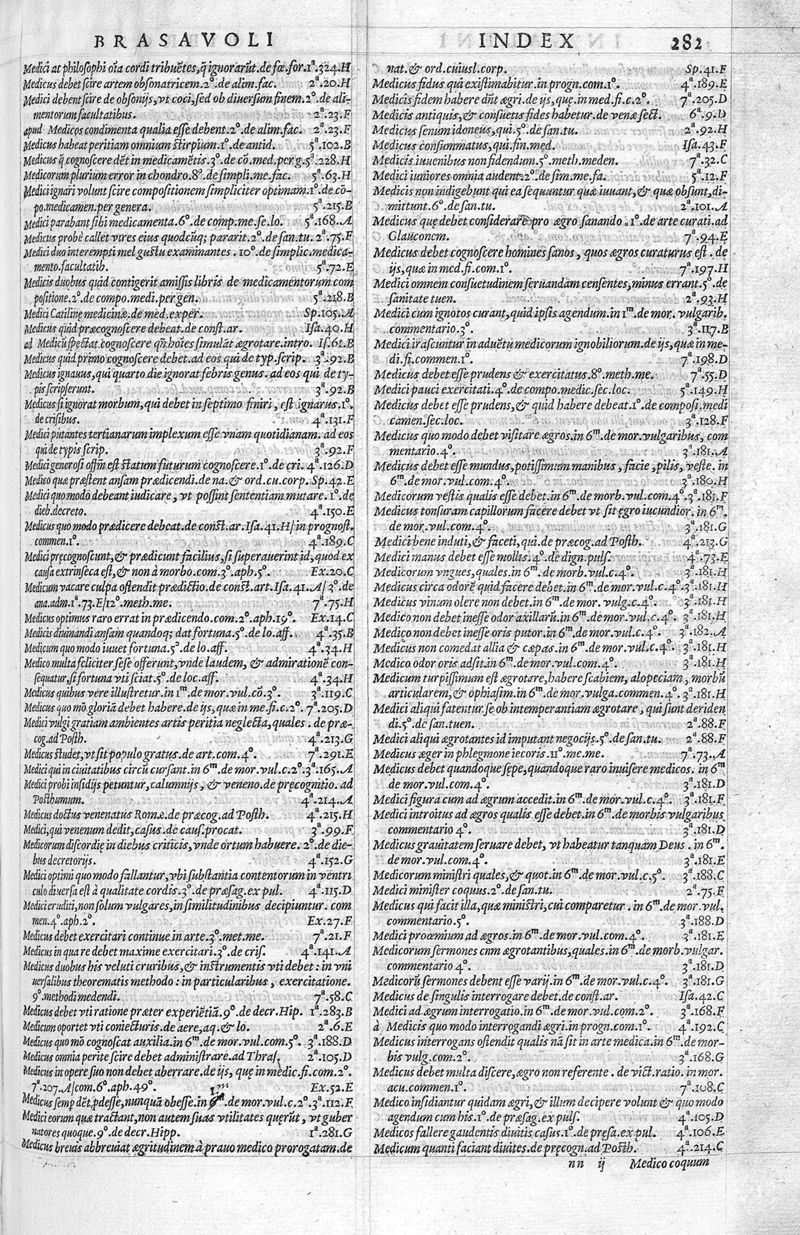 BRASAVOLI
Medici at philosophi oīa cordi tribuētes, q̄ ignorarūt. de fœ. for. 1ª. 324. H
Medicus debet scire artem obsonatricem. 2°. de alim. fac. 2ª. 20. H
Medici debent scire de obsonijs, vt coci, sed ob diuersum finem. 2°. de ali-
mentorum facultatibus. 2ª. 23. F
apud Medicos condimenta qualia esse debent. 2°. de alim. fac. 2ª. 23. F
Medicus habeat peritiam omnium stirpium. 1°. de antid. 5ª. 102. B
Medicus q̄ cognoscere dēt in medicamētis. 3°. de cō. med. per g. 5ª. 228. H
Medicorum plurium error in chondro. 8°. de simpli. me. fac. 5ª. 63. H
Medici ignari volunt scire compositionem simpliciter optimam. 1°. de cō-
po. medicamen. per genera. 5ª. 215. B
Medici parabant sibi medicamenta. 6°. de comp. me. se. lo. 5ª. 168. A
Medicus probè callet vires eius quodcūq; pararit. 2°. de san. tu. 2ª. 75. F
Medici duo interempti mel gustu examinantes. 10°. de simplic. medica-
mento. facultatib. 5ª. 72. E
Medicis duobus quid contigerit amissis libris de medicamentorum com
positione. 2°. de compo. medi. per gen. 5ª. 218. B
Medici Catilinę medicinæ. de med. exper. Sp. 105. A
Medicus quid præcognoscere debeat. de const. ar. Isa. 40. H
ad Medicū spectat cognoscere q̄n hoīes simulāt ægrotare. intro. Is. 61. B
Medicus quid primo cognoscere debet. ad eos qui de typ. scrip. 3ª. 92. B
Medicus ignauus, qui quarto die ignorat febris genus. ad eos qui de ty-
pis scripserunt. 3ª. 92. B
Medicus si ignorat morbum, qui debet in septimo finiri, est ignarus. 1°.
de crisibus. 4ª. 131. F
Medici putantes tertianarum implexum esse vnam quotidianam. ad eos
qui de typis scrip. 3ª. 92. F
Medici generosi offm̄ est statum futurum cognoscere. 1°. de cri. 4ª. 126. D
Medico quæ præstent ansam prædicendi. de na. & ord. cu. corp. Sp. 42. E
Medici quo modo debeant iudicare, vt possint sententiam mutare. 1°. de
dieb. decreto. 4ª. 150. E
Medicus quo modo prædicere debeat. de const. ar. Isa. 41. H/ in prognost.
commen. 1°. 4ª. 189. C
Medici pręcognoscunt, & prædicunt facilius, si superauerint id, quod ex
causa extrinseca est, & non à morbo. com. 3°. aph. 5°. Ex. 20. C
Medicum vacare culpa ostendit prædictio. de const. art. Isa. 41. A/ 3°. de
ana. adm. 1ª. 73. E/ 12°. meth. me. 7ª. 75. H
Medicus optimus raro errat in prædicendo. com. 2°. aph. 19°. Ex. 14. C
Medicis diuinandi ansam quandoq; dat fortuna. 5°. de lo. aff. 4ª. 35. B
Medicum quo modo iuuet fortuna. 5°. de lo. aff. 4ª. 34. H
Medico multa feliciter sese offerunt, vnde laudem, & admirationē con-
sequatur, si fortuna vti sciat. 5°. de loc. aff. 4ª. 34. H
Medicus quibus vere illustretur. in 1m. de mor. vul. cō. 3°. 3ª. 119. C
Medicus quo mō gloriā debet habere. de ijs, quæ in me. fi. c. 2°. 7ª. 205. D
Medici vulgi gratiam ambientes artis peritia neglecta, quales. de præ-
cog. ad Posth. 4ª. 213. G
Medicus studet, vt sit populo gratus. de art. com. 4°. 7ª. 291. E
Medici qui in ciuitatibus circū cursant. in 6m. de mor. vul. c. 2°. 3ª. 165. A
Medici probi insidijs petuntur, calumnijs, & veneno. de pręcognitio. ad
Posthumum. 4ª. 214. A
Medicus doctus venenatus Romæ. de præcog. ad Posth. 4ª. 215. H
Medici, qui venenum dedit, casus. de caus. procat. 3ª. 99. F
Medicorum discordię in diebus criticis, vnde ortum habuere. 2°. de die-
bus decretorijs. 4ª. 152. G
Medici optimi quo modo fallantur, vbi substantia contentorum in ventri
culo diuersa est à qualitate cordis. 3°. de præsag. ex pul. 4ª. 115. D
Medici eruditi, non solum vulgares, in similitudinibus decipiuntur. com
men. 4°. aph. 2°. Ex. 27. F
Medicus debet exercitari continue in arte. 3°. met. me. 7ª. 21. F
Medicus in qua re debet maxime exercitari. 3°. de cris. 4ª. 141. A
Medicus duobus his veluti cruribus, & instrumentis vti debet: in vni
uersalibus theorematis methodo: in particularibus, exercitatione.
9°. methodi medendi. 7ª. 58. C
Medicus debet vti ratione præter experiētiā. 9°. de decr. Hip. 1ª. 283. B
Medicum oportet vti coniecturis. de aere, aq. & lo. 2ª. 6. E
Medicus quo mō cognoscat auxilia. in 6m. de mor. vul. com. 5°. 3ª. 188. D
Medicus omnia perite scire debet administrare. ad Thras. 2ª. 105. D
Medicus in opere suo non debet aberrare. de ijs, quę in medic. fi. com. 2°.
7ª. 207. A/ com. 6°. aph. 49°. Ex. 52. E
Medicus semp dēt, pdesse, nunquā obesse. in de mor. vul. c. 2°. 3ª. 112. F
Medici eorum quæ tractant, non autem suas vtilitates querūt, vt guber
natores quoque. 9°. de decr. Hipp. 1ª. 281. G
Medicus breuis abbreuiat ægritudinem à prauo medico prorogatam. de
INDEX 282
nat. & ord. cuiusl. corp. Sp. 41. F
Medicus fidus qui existimabitur. in progn. com. 1°. 4ª. 189. E
Medicis fidem habere dn̄t ægri. de ijs, quę. in med. fi. c. 2°. 7ª. 205. D
Medicis antiquis, & consuetis fides habetur. de venæ sect. 6ª. 9. D
Medicus senum idoneus, qui. 5°. de san. tu. 2ª. 92. H
Medicus consummatus, qui. fin. med. Isa. 43. F
Medicis iuuenibus non fidendum. 5°. meth. meden. 7ª. 32. C
Medici iuniores omnia audent. 2°. de sim. me. fa. 5ª. 12. F
Medicis non indigebunt qui ea sequuntur quæ iuuant, & quæ obsunt, di-
mittunt. 6°. de san. tu. 2ª. 101. A
Medicus quę debet considerare pro ægro sanando. 1°. de arte curati. ad
Glauconem. 7ª. 94. E
Medicus debet cognoscere homines sanos, quos ægros curaturus est. de
ijs, quæ in med. fi. com. 1°. 7ª. 197. H
Medici omnem consuetudinem seruandam censentes, minus errant. 5°. de
sanitate tuen. 2ª. 93. H
Medici cum ignotos curant, quid ipsis agendum. in 1m. de mor. vulgarib.
commentario. 3°. 3ª. 117. B
Medici irascuntur in aduētu medicorum ignobiliorum. de ijs, quæ in me-
di. fi. commen. 1°. 7ª. 198. D
Medicus debet esse prudens & exercitatus. 8°. meth. me. 7ª. 55. D
Medici pauci exercitati. 4°. de compo. medic. sec. loc. 5ª. 149. H
Medicus debet esse prudens, & quid habere debeat. 1°. de composi. medi
camen. sec. loc. 3ª. 128. F
Medicus quo modo debet visitare ægros. in 6m. de mor. vulgaribus, com
mentario. 4°. 3ª. 181. A
Medicus debet esse mundus, potissimum manibus, facie, pilis, veste. in
6m. de mor. vul. com. 4°. 3ª. 180. H
Medicorum vestis qualis esse debet. in 6m. de morb. vul. com. 4°. 3ª. 181. F
Medicus tonsuram capillorum facere debet vt sit ęgro iucundior. in 6m.
de mor. vul. com. 4°. 3ª. 181. G
Medici bene induti, & faceti, qui. de præcog. ad Posth. 4ª. 213. G
Medici manus debet esse mollis. 4°. de dign. puls. 4ª. 73. E
Medicorum vngues, quales. in 6m. de morb. vul. c. 4°. 3ª. 181. H
Medicus circa odorē quid facere debet. in 6m. de mor. vul. c. 4°. 3ª. 181. H
Medicus vinum olere non debet. in 6m. de mor. vulg. c. 4°. 3ª. 181. H
Medico non debet inesse odor axillarū. in 6m. de mor. vul. c. 4°. 3ª. 181. H
Medico non debet inesse oris putor. in 6m. de mor. vul. c. 4°. 3ª. 182. A
Medicus non comedat allia & cæpas. in 6m. de mor. vul. c. 4°. 3ª. 181. H
Medico odor oris adsit. in 6m. de mor. vul. com. 4°. 3ª. 181. H
Medicum turpissimum est ægrotare, habere scabiem, alopeciam, morbū
articularem, & ophiasim. in 6m. de mor. vulga. commen. 4°. 3ª. 181. H
Medici aliqui fatentur se ob intemperantiam ægrotare, qui sunt deriden
di. 5°. de san. tuen. 2ª. 88. F
Medici aliqui ægrotantes id imputant negocijs. 5°. de san. tu. 2ª. 88. F
Medicus æger in phlegmone iecoris. 11°. me. me. 7ª. 73. A
Medicus debet quandoque sępe, quandoque raro inuisere medicos. in 6m
de mor. vul. com. 4°. 3ª. 181. D
Medici figura cum ad ægrum accedit. in 6m. de mor. vul. c. 4°. 3ª. 181. F
Medici introitus ad ægros qualis esse debet. in 6m. de morbis vulgaribus
commentario 4°. 3ª. 181. D
Medicus grauitatem seruare debet, vt habeatur tanquam Deus. in 6m.
de mor. vul. com. 4°. 3ª. 181. E
Medicorum ministri quales, & quot. in 6m. de mor. vul. c. 5°. 3ª. 188. C
Medici minister coquus. 2°. de san. tu. 2ª. 75. F
Medicus qui facit illa, quæ ministri, cui comparetur. in 6m. de mor. vul.
commentario. 5°. 3ª. 188. D
Medici proœmium ad ægros. in 6m. de mor. vul. com. 4°. 3ª. 181. E
Medicorum sermones cum ægrotantibus, quales. in 6m. de morb. vulgar.
commentario 4°. 3ª. 181. D
Medicorū sermones debent esse varij. in 6m. de mor. vul. com. 4°. 3ª. 181. G
Medicus de singulis interrogare debet. de const. ar. Isa. 42. C
Medici ad ægrum interrogatio. in 6m. de mor. vul. com. 2°. 3ª. 168. F
à Medicis quo modo interrogandi ægri. in progn. com. 1°. 4ª. 192. C
Medicus interrogans ostendit qualis nā sit in arte medica. in 6m. de mor-
bis vulg. com. 2°. 3ª. 168. G
Medicus debet multa discere, ægro non referente. de vict. ratio. in mor.
acu. commen. 1°. 7ª. 108. C
Medico insidiantur quidam ægri, & illum decipere volunt & quo modo
agendum cum his. 1°. de præsag. ex puls. 4ª. 105. D
Medicos fallere gaudentis diuitis casus. 1°. de pręsa. ex pul. 4ª. 106. E
Medicum quanti faciant diuites. de pręcogn. ad Posth. 4ª. 214. C
nn ij Medico coquum